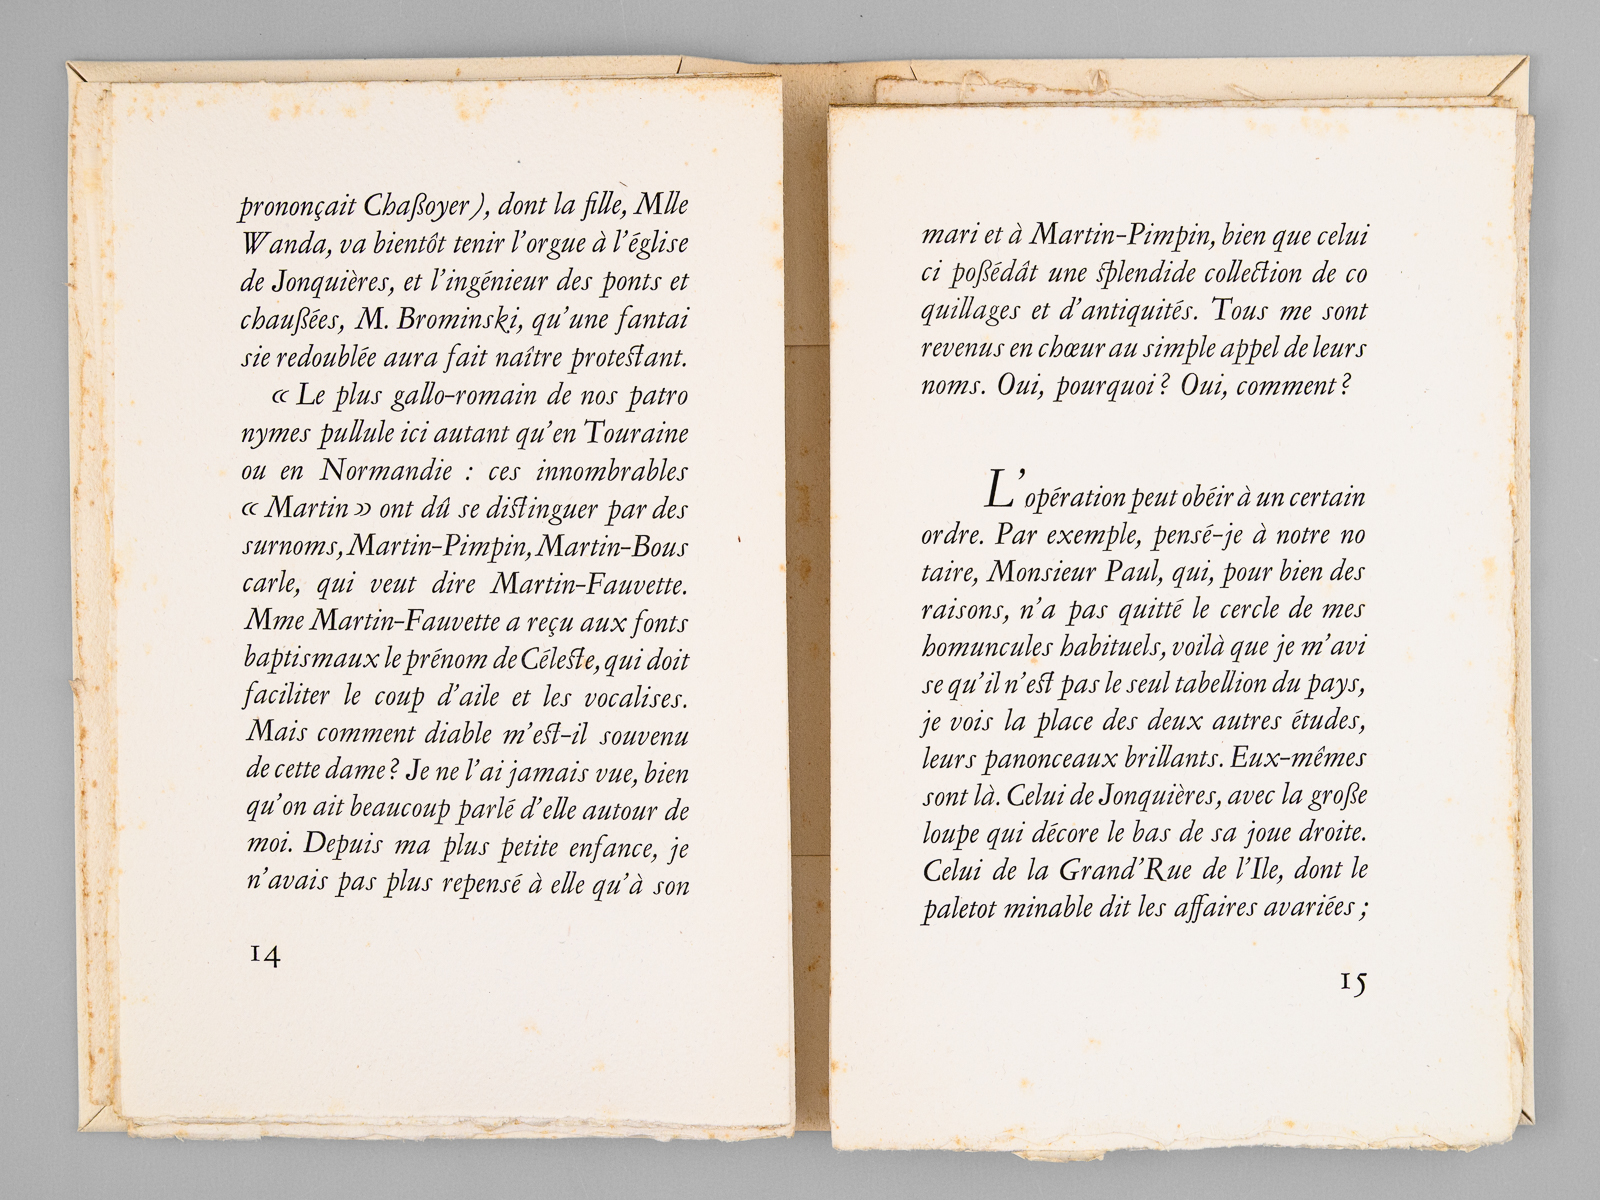 prononçait Chaßoyer), dont la fille, Mlle
Wanda, va bientôt tenir l'orgue à l'église
de Jonquières, et l'ingénieur des ponts et
chaußées, M. Brominski, qu'une fantai
sie redoublée aura fait naître protestant.
« Le plus gallo-romain de nos patro
nymes pullule ici autant qu'en Touraine
ou en Normandie : ces innombrables
« Martin » ont dû se distinguer par des
surnoms, Martin-Pimpin, Martin-Bous
carle, qui veut dire Martin-Fauvette.
Mme Martin-Fauvette a reçu aux fonts
baptismaux le prénom de Céleste, qui doit
faciliter le coup d'aile et les vocalises.
Mais comment diable m'est-il souvenu
de cette dame ? Je ne l'ai jamais vue, bien
qu'on ait beaucoup parlé d'elle autour de
moi. Depuis ma plus petite enfance, je
n'avais pas plus repensé à elle qu'à son
14
mari et à Martin-Pimpin, bien que celui
ci poßédât une splendide collection de co
quillages et d'antiquités. Tous me sont
revenus en chœur au simple appel de leurs
noms. Oui, pourquoi ? Oui, comment ?
L'opération peut obéir à un certain
ordre. Par exemple, pensé-je à notre no
taire, Monsieur Paul, qui, pour bien des
raisons, n'a pas quitté le cercle de mes
homuncules habituels, voilà que je m'avi
se qu'il n'est pas le seul tabellion du pays,
je vois la place des deux autres études,
leurs panonceaux brillants. Eux-mêmes
sont là. Celui de Jonquières, avec la große
loupe qui décore le bas de sa joue droite.
Celui de la Grand'Rue de l'Ile, dont le
paletot minable dit les affaires avariées ;
15